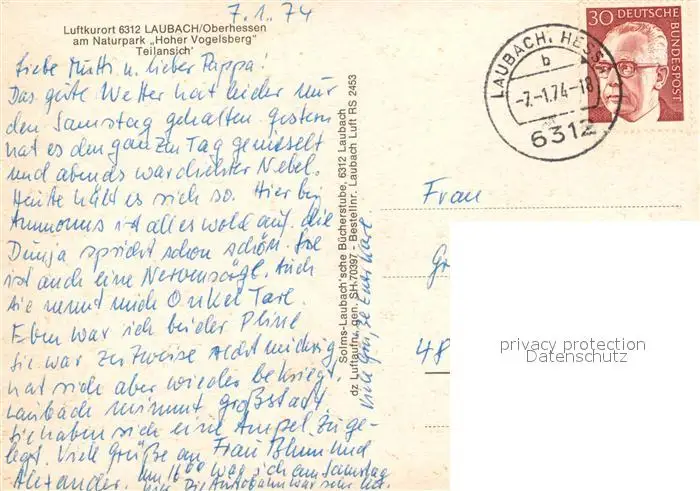 7.1.74
Luftkurort 6312 LAUBACH/Oberhessen
am Naturpark „Hoher Vogelsberg"
Teilansich'
Liebe Mutti u. lieber Pappa!
Das gute Wetter hat leider nur
den Samstag gehalten. gestern
hat es den ganzen Tag genieselt
und abends war dichter Nebel.
Heute hält es sich so. Hier bei
ist alles wohl auf. die
Dunja spricht schon schön. Sie
ist auch eine Nervensäge. Auch
sie nennt mich Onkel
Eben war ich bei der
Sie war zeitweise recht
hat sich aber wieder bekriegt.
Laubach nimmt großstadt.
Sie haben sich eine Ampel zuge-
legt. Viele Grüße an Frau Blum und
Alexander. Um 16 00 war ich am Samstag
hier. Die Autobahn war sehr
Viele Grüße Euer
Solms-Laubach'sche Bücherstube, 6312 Laubach
dz Luftaufn. gen. SH-70397 - Bestellnr. Laubach Luft RS 2453
30 DEUTSCHE
BUNDESPOST
LAUBACH, HESS
b
-7.-1.74-18
6312
Frau
48
privacy protection
Datenschutz